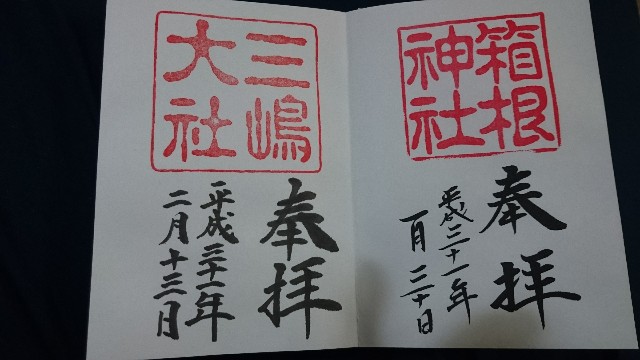 箱根
神社
奉拝
平成三十一年
一月二十日
三嶋
大社
奉拝
平成三十一年
二月十三日